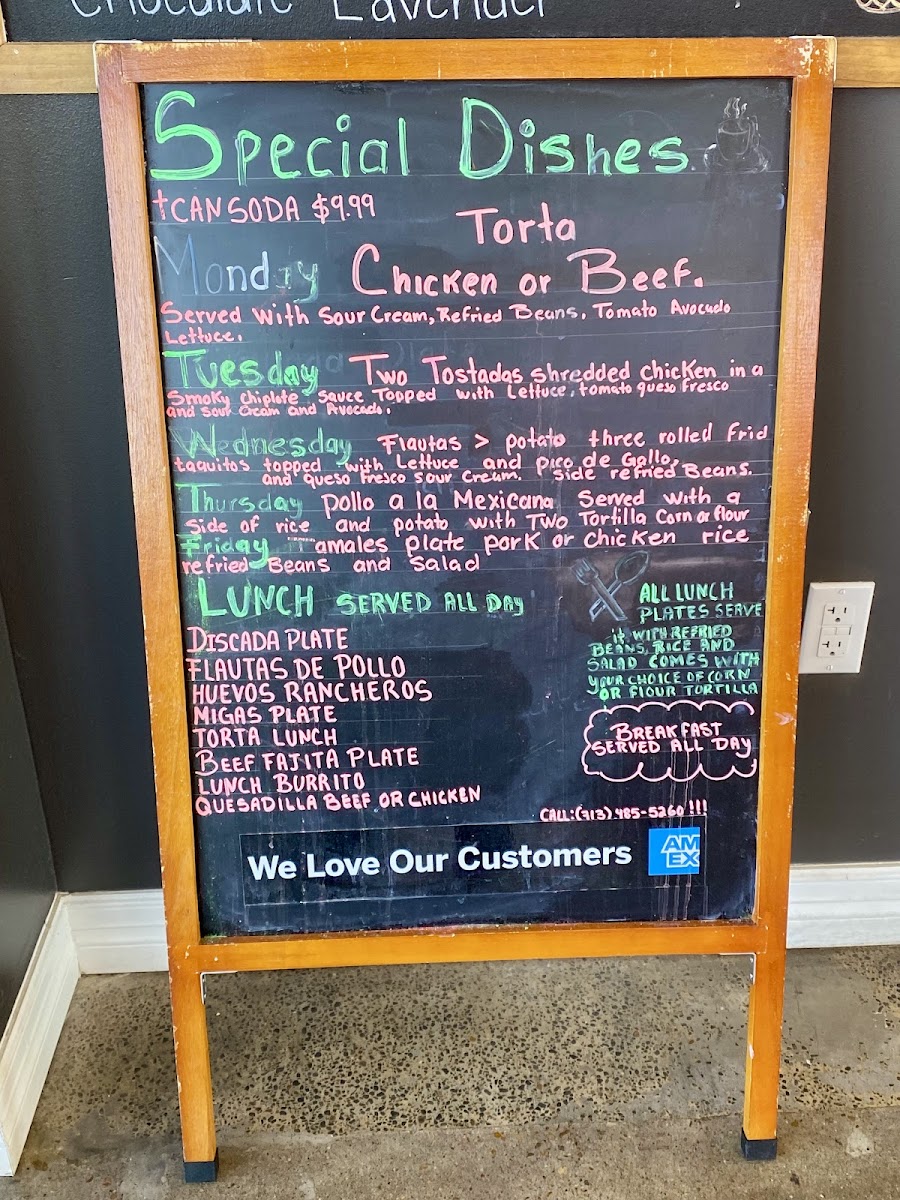 Chocolate Lavender
Special Dishes
+CAN SODA $9.99
Torta
Monday Chicken or Beef.
Served With Sour Cream, Refried Beans, Tomato Avocado
Lettuce.
Tuesday Two Tostadas shredded chicken in a
Smoky chiplote Sauce Topped with Lettuce, tomato queso Fresco
and sour cream and Avocado.
Wednesday Flautas > potato three rolled Frid
taquitos topped with Lettuce and pico de Gallo,
and queso Fresco sour cream. side refried Beans.
Thursday pollo a la Mexicana Served with a
side of rice and potato with TWO Tortilla Corn or flour
Friday amales plate pork or chicken rice
refried Beans and Salad
LUNCH SERVED ALL DAY
DISCADA PLATE
FLAUTAS DE POLLO
HUEVOS RANCHEROS
MIGAS PLATE
TORTA LUNCH
BEEF FAJITA PLATE
LUNCH BURRITO
QUESADILLA BEEF OR CHICKEN
ALL LUNCH
PLATES SERVE
it WITH REFRIED
BEANS, RICE AND
SALAD COMES WITH
YOUR CHOICE OF CORN
OR FlOUR TORTILLA
BREAKFAST
SERVED ALL DAY
CALL:(713) 485-5260 !!!
We Love Our Customers
AM
EX